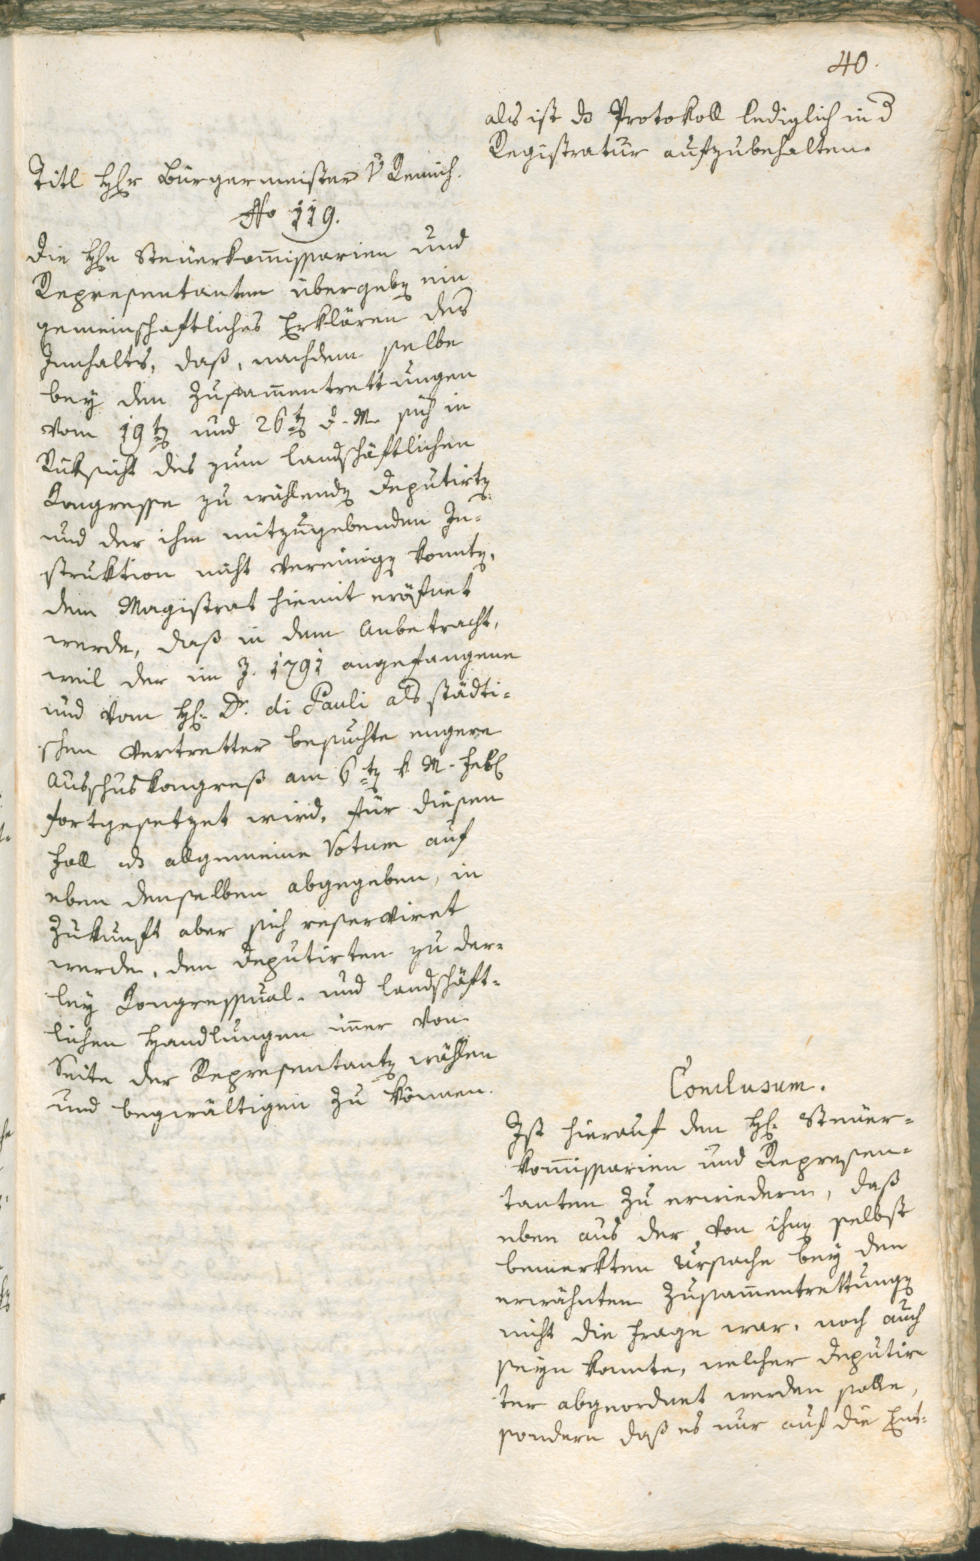 40.
als ist ds Protokoll lediglich in d
Registratur aufzubehalten.
Titl Hr Bürgermeister v Remich.
No 119.
Die Hhn Steuerkom̄issarien und
Representanten übergeben ein
gemeinschaftliches Erklären des
Innhalts, daß, nachdem selbe
bey den Zusam̄entrettungen
vom 19ten und 26ten d. M. sich in
Rüksicht des zum landschäftlichen
Kongresse zu wählenden Deputirten
und der ihm mitzugebenden In-
struktion nicht vereinigen konnten,
dem Magistrat hiemit eröfnet
werde, daß in dem Anbetracht,
weil der im J. 1791 angefangene
und vom H. Dr. di Pauli als städti-
schen Vertretter besuchte engere
Ausschuskongreß am 6ten k. M. Febr
fortgesetzet wird, für diesen
Fall ds allgemeine Votum auf
eben denselben abgegeben, in
Zukunft aber sich reserviret
werde, den Deputirten zu der-
ley Kongressual- und landschäft-
lichen Handlungen im̄er von
Seite der Representanten wählen
und begwältigen zu können.
Conclusum.
Ist hierauf den H. Steuer-
kom̄issarien und Represen-
tanten zu erwiedern, daß
eben aus der von ihnen selbst
bemerkten Ursache bey den
erwähnten Zusam̄entrettungen
nicht die Frage war, noch auch
seyn konnte, welcher Deputir-
ter abgeordnet werden solle,
sondern daß es nur auf die Ent-